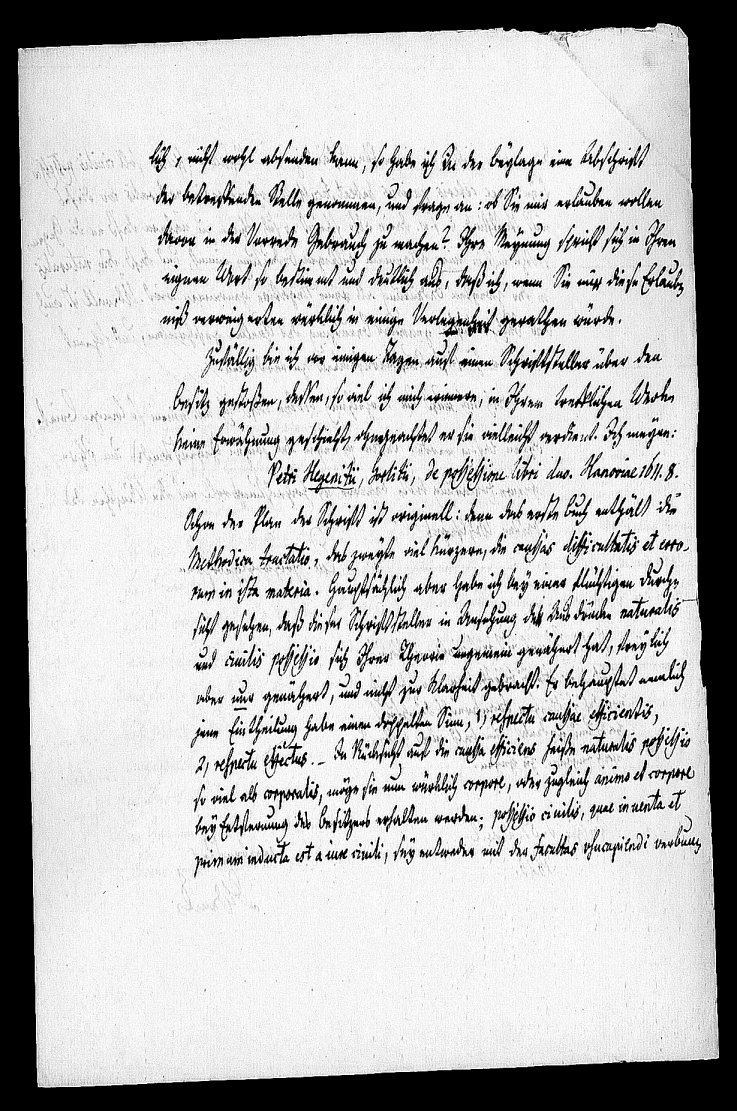 lich, nicht wohl absenden kann, so habe ich in der beylage eine Abschrift
der betreffenden Stelle genommen, und frage an: ob Sie mir erlauben wollen
davon in der Vorrede Gebrauch zu machen? Ihre Meynung spricht sich in Ihren
eignen Wort so bestimmt und deutlich aus, daß ich, wenn Sie mir diese Erlaub-
niß verweigerten würklich in einige Verlegenheit gerathen würde.
Zufällig bin ich vor einigen Tagen auf einen Schriftsteller über den
besitz gestoßen, dessen, so viel ich mich erinnere, in Ihrem trefflichen Werke
keine Erwähnung geschieht, ohngeachtet er sie vielleicht verdient. Ich meyne:
Petri Hegenitii, Gorlitii, de possessione libri duo. Hanoviae 1611. 8.
Schon der Plan der Schrift ist originell: denn das erste buch enthält die
Methodica tractatio, das zweyte viel kürzere, die causas difficultatis et erro-
rum in ista materia. Hauptsächlich aber habe ich bey einer flüchtigen Durch-
sicht gesehen, daß dieser Schriftsteller in Ansehung des Ausdrucks naturalis
und civilis possessio sich Ihrer Theorie ungemein genähert hat, freylich
aber nur genähert, und nicht zur Klarheit gebracht. Er behauptet nemlich
jene Eintheilung habe einen doppelten Sinn, 1, respectu caussae efficientis,
2, respectu effectus. – In Rücksicht auf die caussa efficiens heiße naturalis possessio
so viel als corporalis, möge sie nun würklich corpore, oder zugleich animo et corpore
bey Entfernung des besitzers erhalten werden; possessio civilis, quae inventa et
primum inducta est a iure civili, sey entweder mit der facultas usucapiendi verbun-